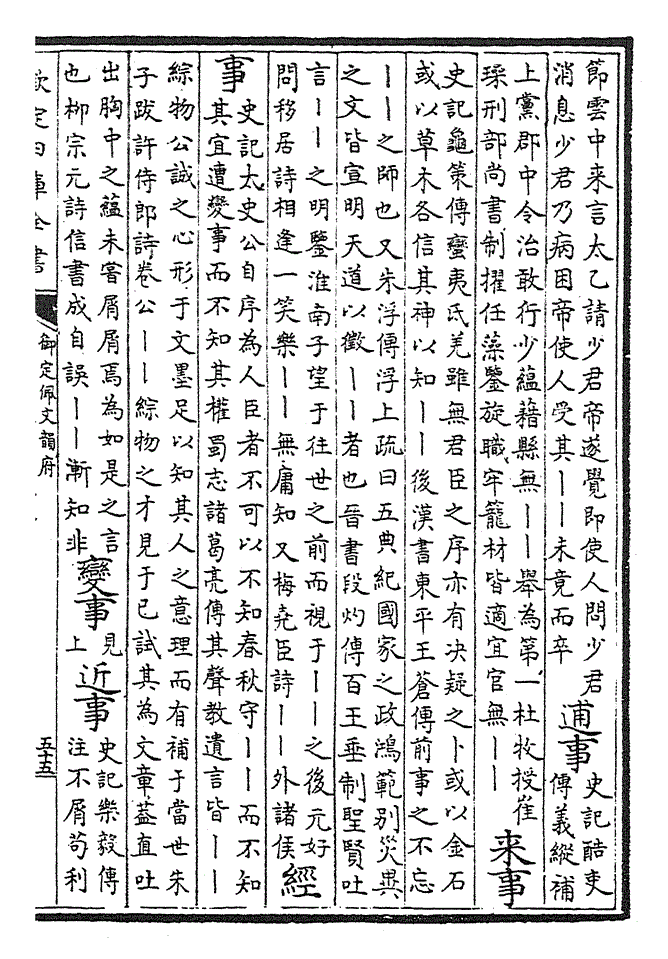 節雲中来言太乙請少君帝遂覺即使人問少君
消息少君乃病困帝使人受其丨丨未竟而卒
逋事
史記酷吏
傳義縱補
上黨郡中令治敢行少蘊藉縣無丨丨舉為第一杜牧授崔
璪刑部尚書制擢任藻鑒旋職牢籠材皆適宜官無丨丨
来事
史記龜策傳蠻夷氐羌雖無君臣之序亦有决疑之卜或以金石
或以草木各信其神以知丨丨後漢書東平王蒼傳前事之不忘
丨丨之師也又朱浮傳浮上疏曰五典紀國家之政鴻範别災異
之文皆宣明天道以徵丨丨者也晉書段灼傳百王垂制聖賢吐
言丨丨之明鑒淮南子望于往世之前而視于丨丨之後元好
問移居詩相逢一笑樂丨丨無庸知又梅堯臣詩丨丨外諸侯
經
事
史記太史公自序為人臣者不可以不知春秋守丨丨而不知
其宜遭變事而不知其權蜀志諸葛亮傳其聲教遺言皆丨丨
綜物公誠之心形于文墨足以知其人之意理而有補于當世朱
子跋許侍郎詩卷公丨丨綜物之才見于已試其為文章葢直吐
出胸中之蘊未嘗屑屑焉為如是之言
也柳宗元詩信書成自誤丨丨漸知非
變事
見
上
近事
史記樂毅傳
注不屑苟利
欽定四庫全書
御定佩文韻府
五十五